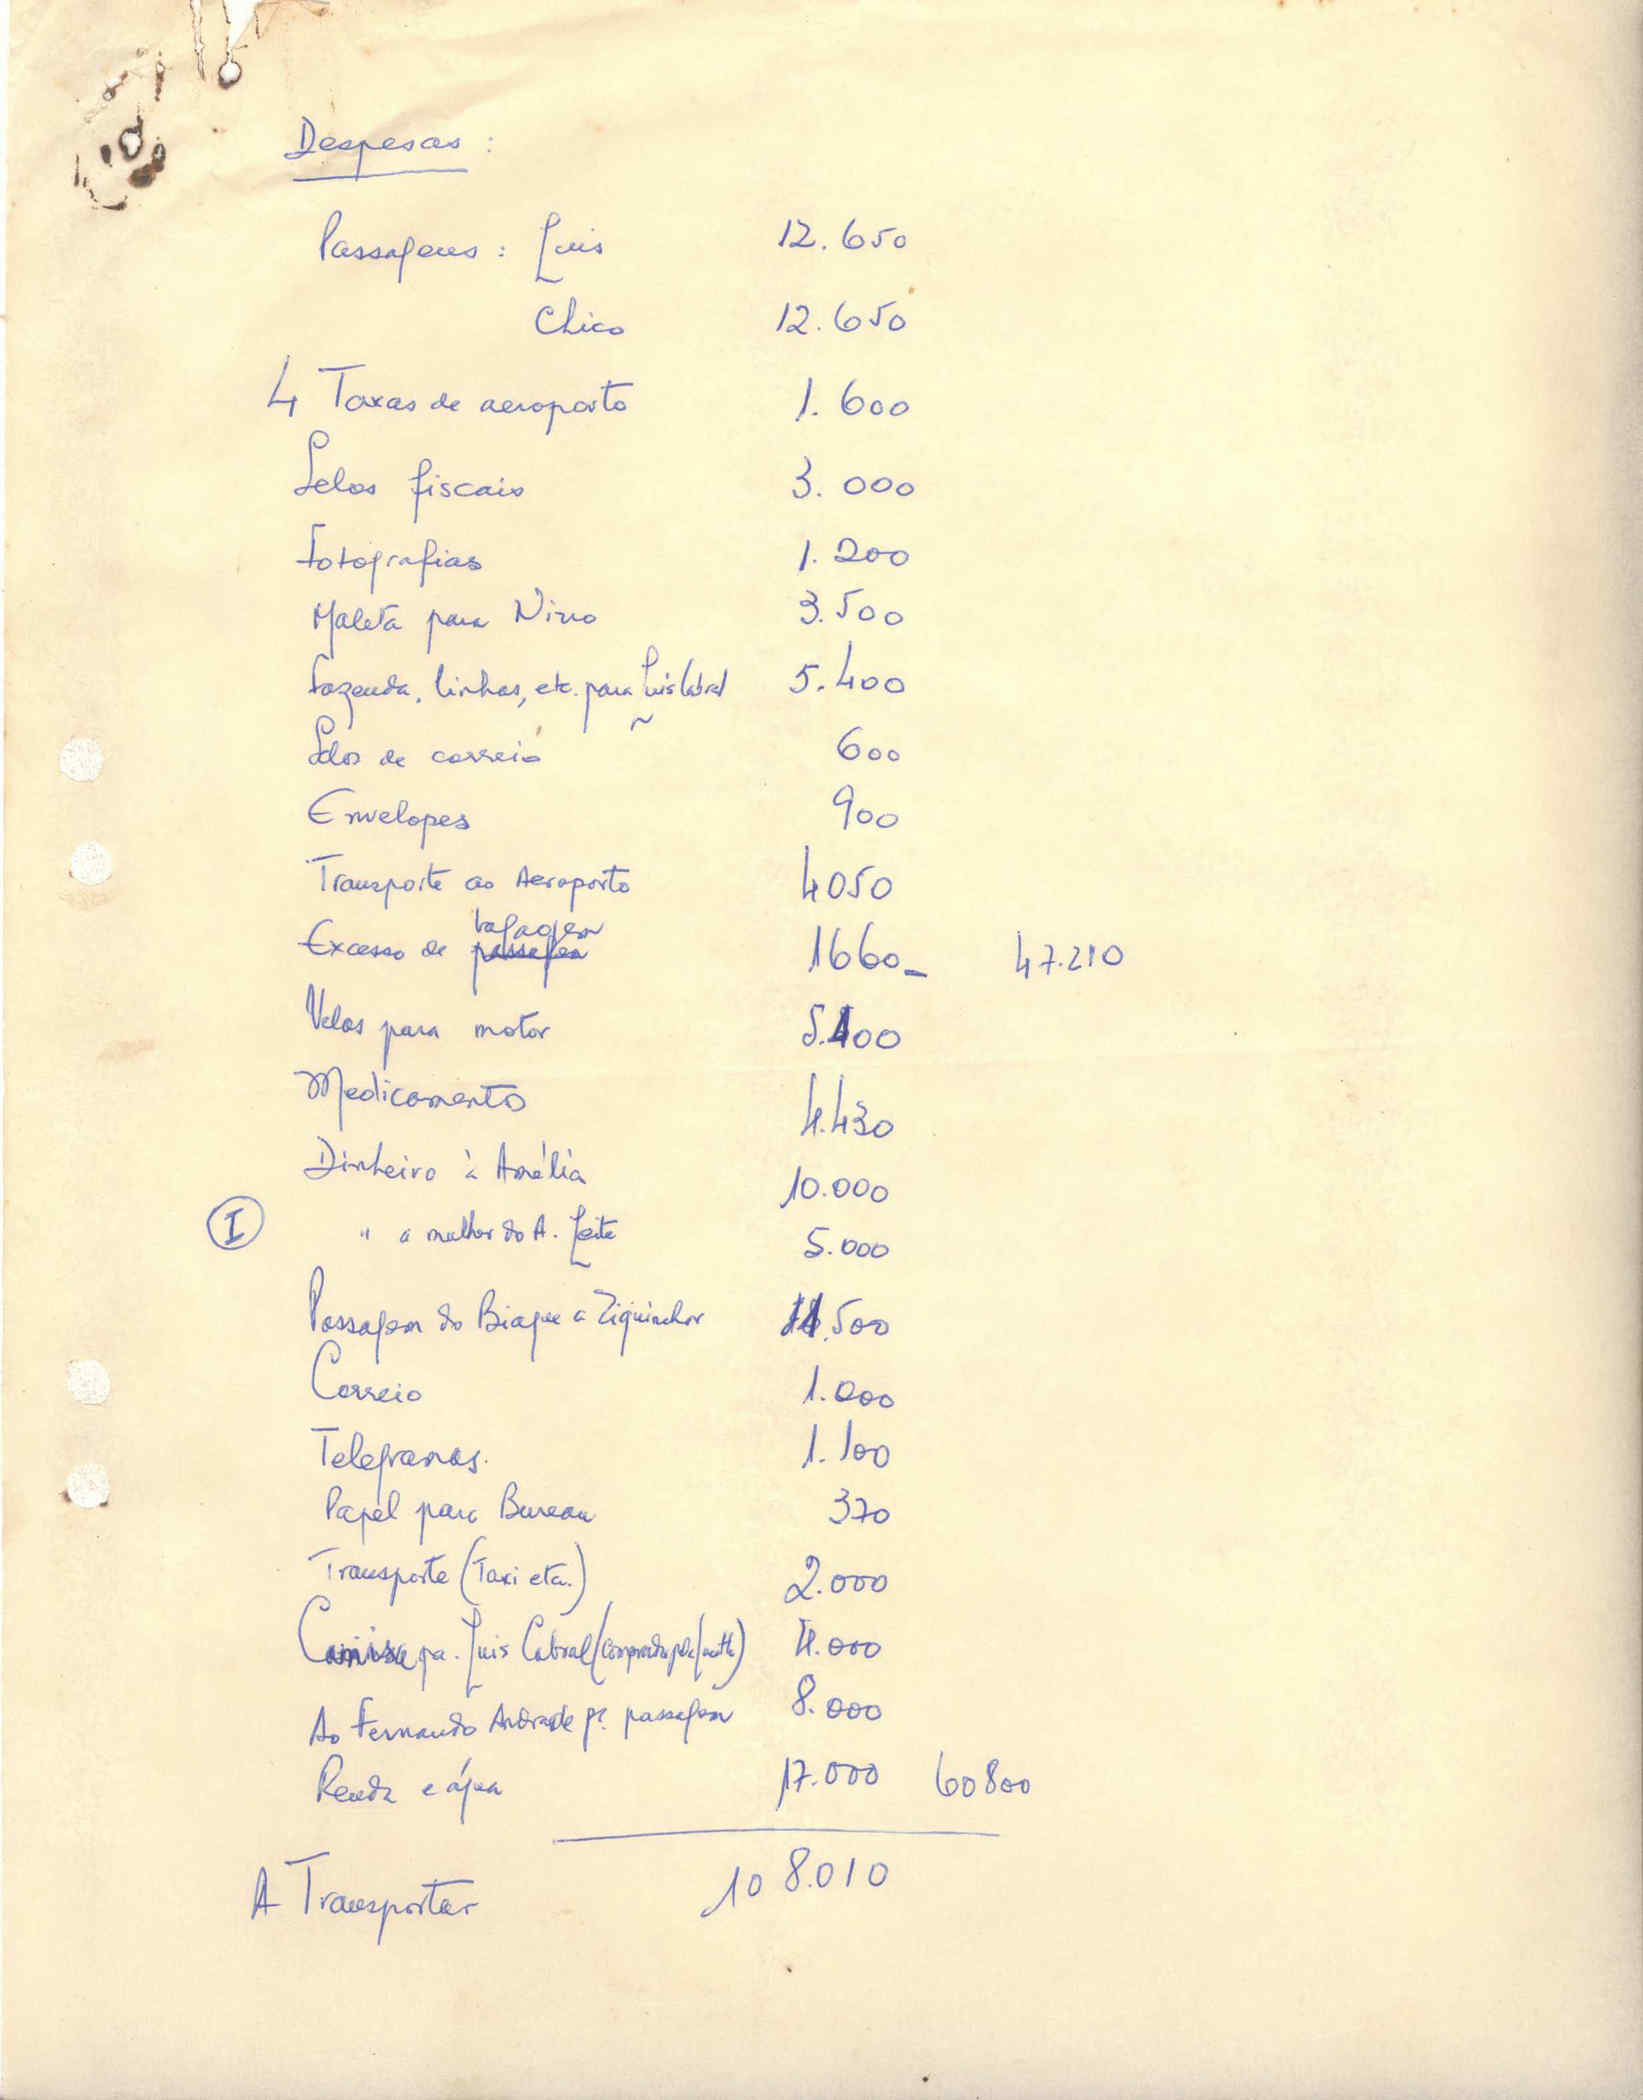 Despesas :
Passagens : Luis 12.650
Chico 12.650
4 Taxas de aeroporto 1.600
Selos fiscais 3.000
Fotografias 1.200
Maleta para Nino 3.500
Fazenda, linhas, etc. para Luis Cabral 5.400
Selos de correio 600
Envelopes 900
Transporte ao Aeroporto 4050
bagagem
Excesso de passagem 1660 47.210
Velas para motor
Medicamento 4.430
Dinheiro à Amélia 10.000
I " a mulher do A. Leite 5.000
Passagem do Biague a Ziguinchor
Correio 1.000
Telegramas. 1.100
Papel para Bureau 370
Transporte (Taxi etc.) 2.000
Camisa pa. Luis Cabral (comprada pela 4.000
Ao Fernando Andrade pª. passagem 8.000
Renda e água 17.000 60800
A Transportar 108.010